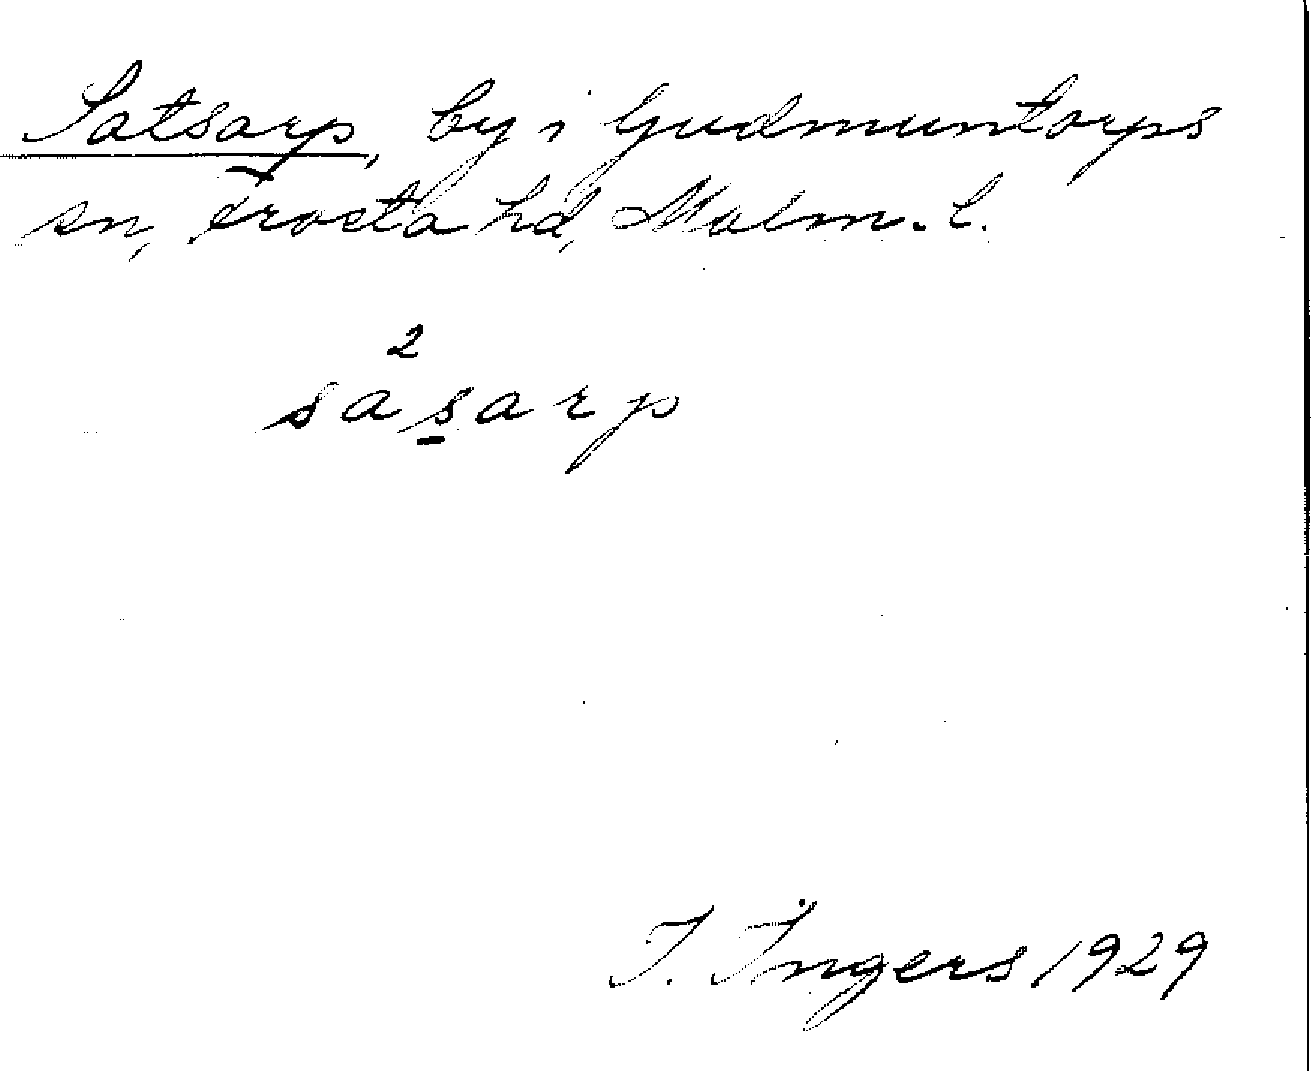 Satsarp, by i Gudmuntorps
sn, Frosta hd, Malm. l.
2
sas̲arp
I. Ingers 1929